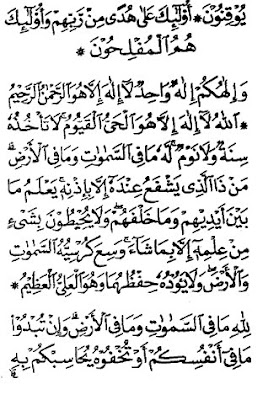 يُوْقِنُوْنَ * أُوْلٰٓئِكَ عَلٰى هُدًى مِنْ رَبِّهِمْ وَأُوْلٰٓئِكَ
هُمُ الْمُفْلِحُوْنَ *
وَإِلٰهُكُمْ إِلٰهٌ وَاحِدٌ لَا إِلٰهَ إِلَّا هُوَ الرَّحْمٰنُ الرَّحِيْمُ
* اَللهُ لَا إِلٰهَ إِلَّا هُوَ الْحَيُّ الْقَيُّوْمُ لَا تَأْخُذُهُ
سِنَةٌ وَلَا نَوْمٌ لَهُ مَا فِى السَّمٰوٰتِ وَمَا فِى الْأَرْضِ
مَنْ ذَا الَّذِى يَشْفَعُ عِنْدَهُ إِلَّا بِإِذْنِهِ يَعْلَمُ مَا
بَيْنَ أَيْدِيْهِمْ وَمَا خَلْفَهُمْ وَلَا يُحِيْطُوْنَ بِشَيْءٍ
مِنْ عِلْمِهِ إِلَّا بِمَا شَاءَ وَسِعَ كُرْسِيُّهُ السَّمٰوٰتِ
وَالْأَرْضَ وَلَا يَؤُدُهُ حِفْظُهُمَا وَهُوَ الْعَلِيُّ الْعَظِيْمُ *
لِلّٰهِ مَا فِى السَّمٰوٰتِ وَمَا فِى الْأَرْضِ وَإِنْ تُبْدُوْا
مَا فِى أَنْفُسِكُمْ أَوْ تُخْفُوْهُ يُحَاسِبْكُمْ بِهِ